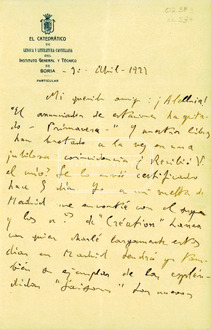 EL CATEDRÁTICO
DE
LENGUA Y LITERATURA CASTELLANA
DEL
INSTITUTO GENERAL Y TÉCNICO
DE
SORIA
PARTICULAR
Abril - 1921
Mi querido amigo: ¡Alleluia!
"El anunciador de estaciones ha gritado
- Primavera - " Y nuestros libros
han brotado a la vez en una
jubilosa coincidencia ¿Recibió V.
el mío? Se lo envié certificado
hace 8 días Yo a mi vuelta de
Madrid me encontré con el suyo
y los de "Création" Larrea
con quien charlé largamente estos
días en Madrid tendrá ya también
ejemplares de las
"Saisons" Los nuevos